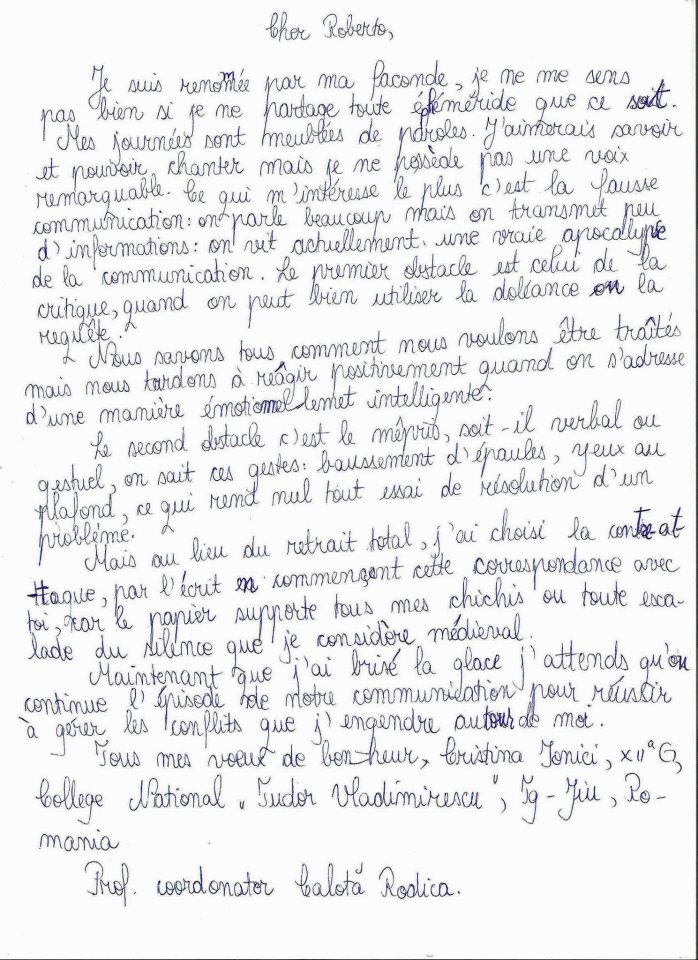 Cher Roberto,
Je suis renommée par ma faconde, je ne me sens
pas bien si je ne partage toute éphéméride que ce soit.
Mes journées sont meublées de paroles. J'aimerais savoir
et pouvoir chanter mais je ne possède pas une voix
remarquable. Ce qui m'intéresse le plus c'est la fausse
communication: on parle beaucoup mais on transmet peu
d'informations: on vit actuellement une vraie apocalypse
de la communication. Le premier obstacle est celui de la
critique, quand on peut bien utiliser la doléance ou la
requête.
Nous savons tous comment nous voulons être traîtés
mais nous tardons à réâgir positivement quand on s'adresse
d'une manière émotionnellemet intelligente.
Le second obstacle c'est le mépris, soit-il verbal ou
gestuel, on sait ces gestes: haussement d'épaules, yeux au
plafond, ce qui rend nul tout essai de résolution d'un
problème.
Mais au lieu du retrait total, j'ai choisi la contre-at-
taque, par l'écrit en commençant cette correspondance avec
toi, car le papier supporte tous mes chichis ou toute esca-
lade du silence que je considère médieval.
Maintenant que j'ai brisé la glace j'attends qu'on
continue l'épisode de notre communication pour réussir
à gérer les conflits que j'engendre autour de moi.
Tous mes voeux de bonheur, Cristina Ionici, XIIª G,
College National „Tudor Vladimirescu", Tg-Jiu, Ro-
mania
Prof. coordonator Calotă Rodica.